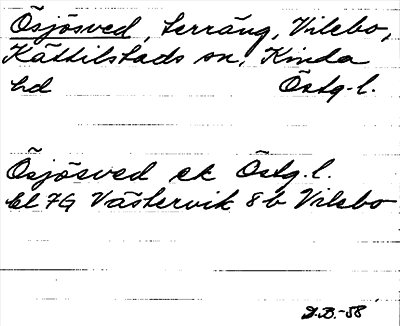 Ösjösved, terräng, Vilebo,
Kättilstads sn, Kinda
hd Östg.l.
Ösjösved ek Östg.l.
bl 7G Västervik 8b Vilebo
D.B.-58